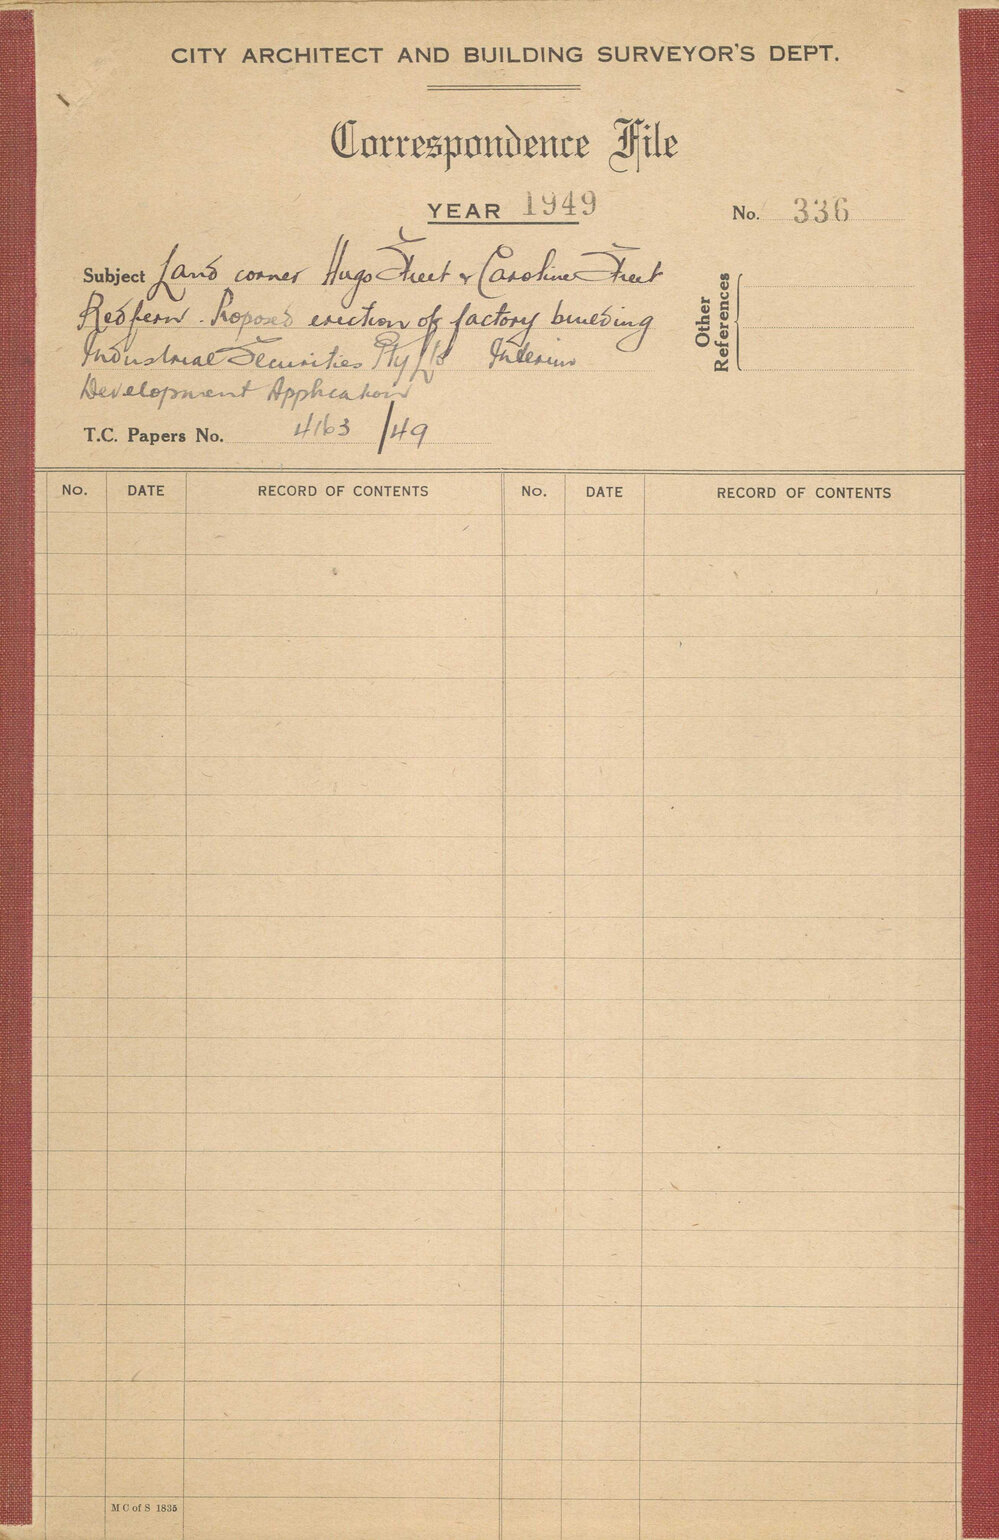 CITY ARCHITECT AND BUILDING SURVEYOR'S DEPT.
Correspondence File
YEAR 1949
No. 336
Subject Land corner Hugo Street & Caroline Street
Redfern. Proposed erection of factory building
Industrial Securities Pty Ltd Interim
Development Application
Other References
T.C. Papers No. 4163/49
No. DATE RECORD OF CONTENTS No. DATE RECORD OF CONTENTS
M C of S 1835